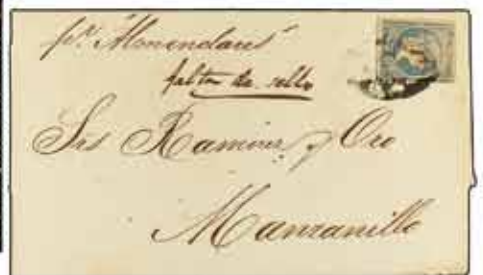 pr. "Almendares"
falta de sello
Srs Ramirez y Oro
Manzanillo